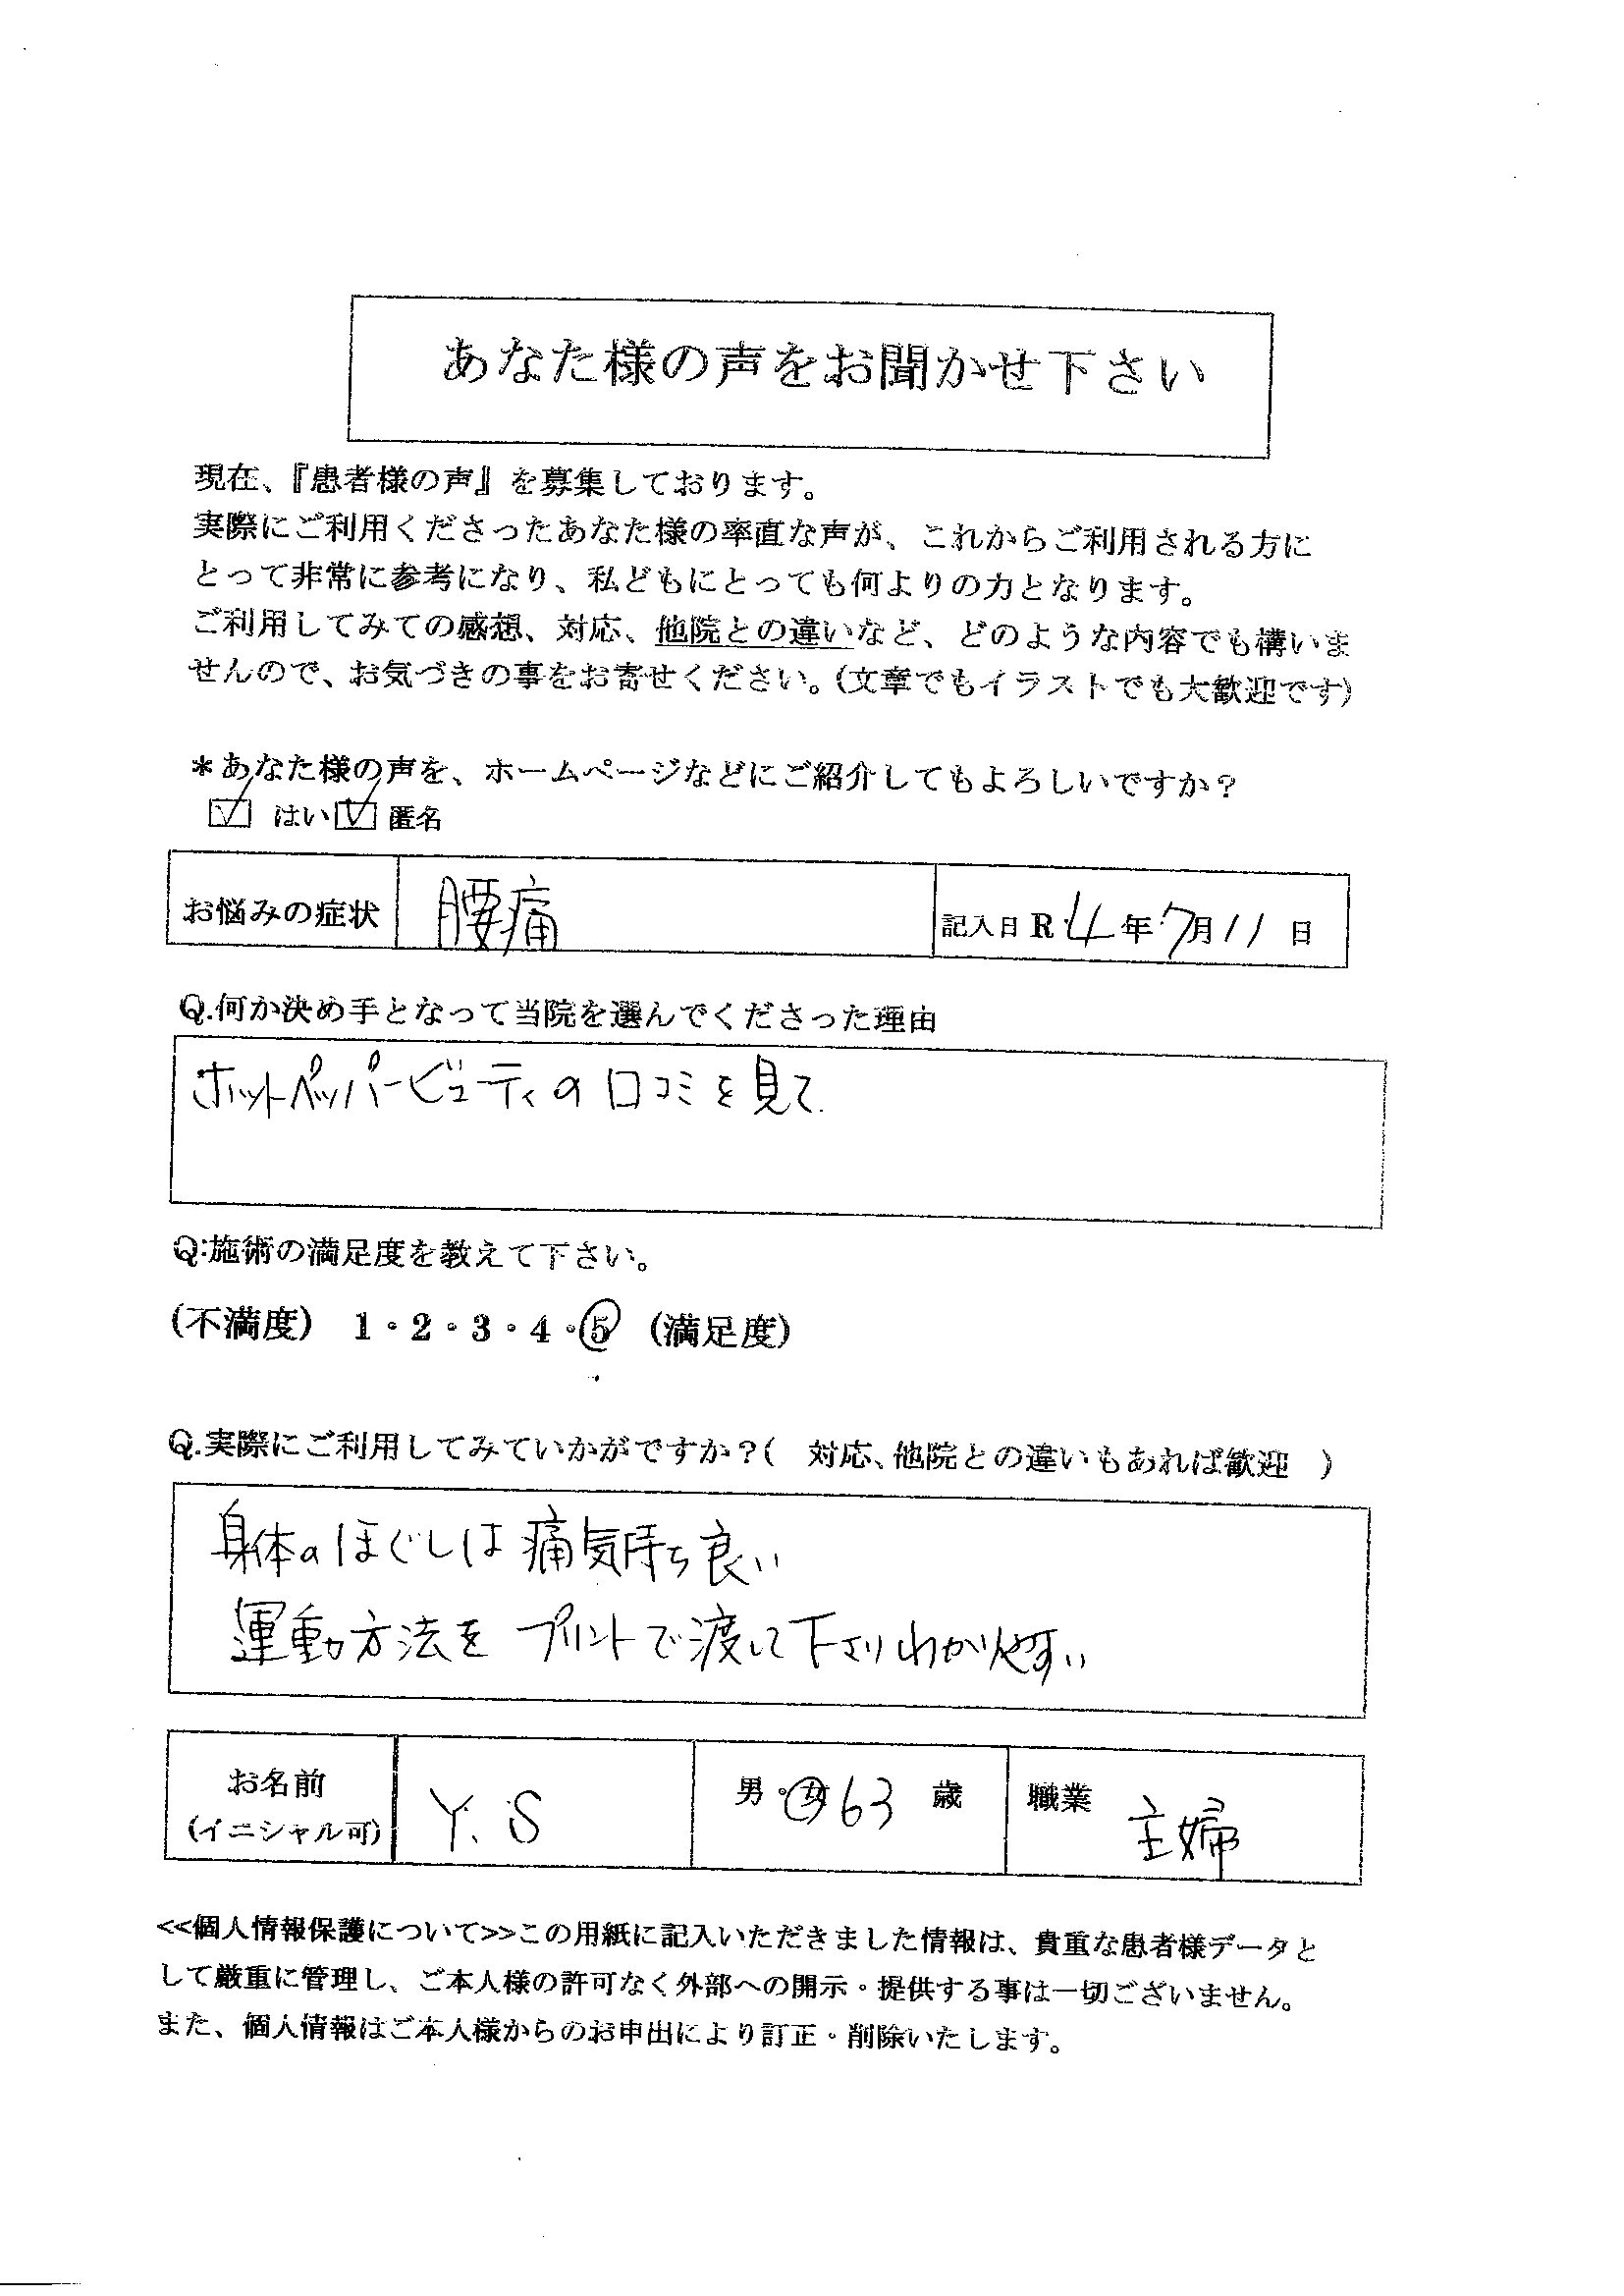 あなた様の声をお聞かせ下さい
現在、『患者様の声』を募集しております。
実際にご利用くださったあなた様の率直な声が、これからご利用される方に
とって非常に参考になり、私どもにとっても何よりの力となります。
ご利用してみての感想、対応、他院との違いなど、どのような内容でも構いま
せんので、お気づきの事をお寄せください。(文章でもイラストでも大歓迎です)
*あなた様の声を、ホームページなどにご紹介してもよろしいですか?
☑ はい ☑ 匿名
お悩みの症状 腰痛 記入日 R 4 年 7 月 11 日
Q.何か決め手となって当院を選んでくださった理由
ホットペッパービューティの口コミを見て.
Q:施術の満足度を教えて下さい。
(不満度) 1・2・3・4・5 (満足度)
Q.実際にご利用してみていかがですか?( 対応、他院との違いもあれば歓迎 )
身体のほぐしは痛気持ち良い
運動方法をプリントで渡して下さりわかりやすい
お名前 Y.S 男・女 63 歳 職業 主婦
(イニシャル可)
<<個人情報保護について>>この用紙に記入いただきました情報は、貴重な患者様データと
して厳重に管理し、ご本人様の許可なく外部への開示・提供する事は一切ございません。
また、個人情報はご本人様からのお申出により訂正・削除いたします。